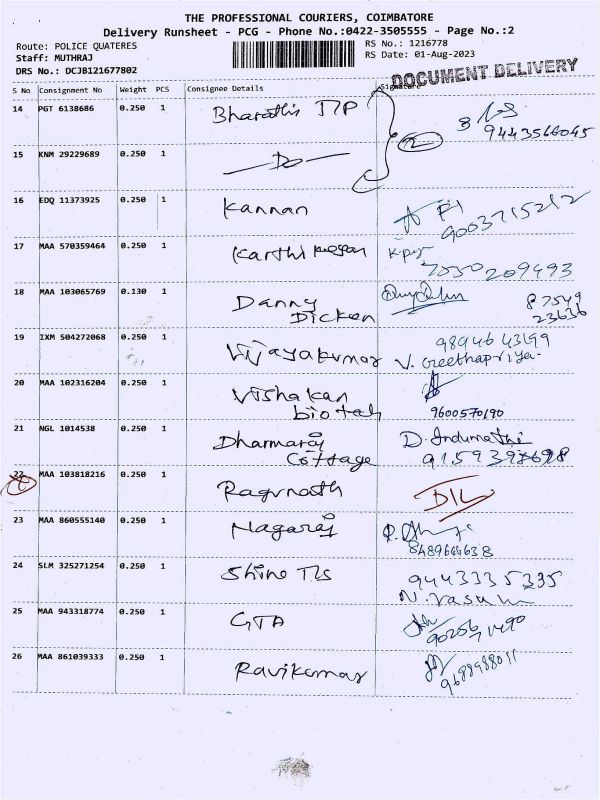 THE PROFESSIONAL COURIERS, COIMBATORE
Delivery Runsheet - PCG - Phone No.:0422-3505555 - Page No.:2
Route: POLICE QUATERES RS No.: 1216778
Staff: MUTHRAJ RS Date: 01-Aug-2023
DRS No.: DCJB121677802
DOCUMENT DELIVERY
S No Consignment No Weight PCS Consignee Details Signature
14 PGT 6138686 0.250 1 Bharathis T/P
9443566045
15 KNM 29229689 0.250 1 — Do —
16 EDQ 11373925 0.250 1 Kannan
9003715212
17 MAA 570359464 0.250 1
7550209493
18 MAA 103065769 0.130 1 Danny 87549
Dicken 23636
19 IXM 504272068 0.250 1 Vijayakumar 9894643199
V. Geethapriya
20 MAA 102316204 0.250 1 Vishakan
biotech 9600570190
21 NGL 1014538 0.250 1 Dharmaraj D. Indumathi
Cottage
22 MAA 103818216 0.250 1 Ragunath D/L
23 MAA 860555140 0.250 1 Nagaraj
8489664638
24 SLM 325271254 0.250 1 Shine Tls 9443335335
25 MAA 943318774 0.250 1 GTA
9025671490
26 MAA 861039333 0.250 1 Ravikumar
9688988011